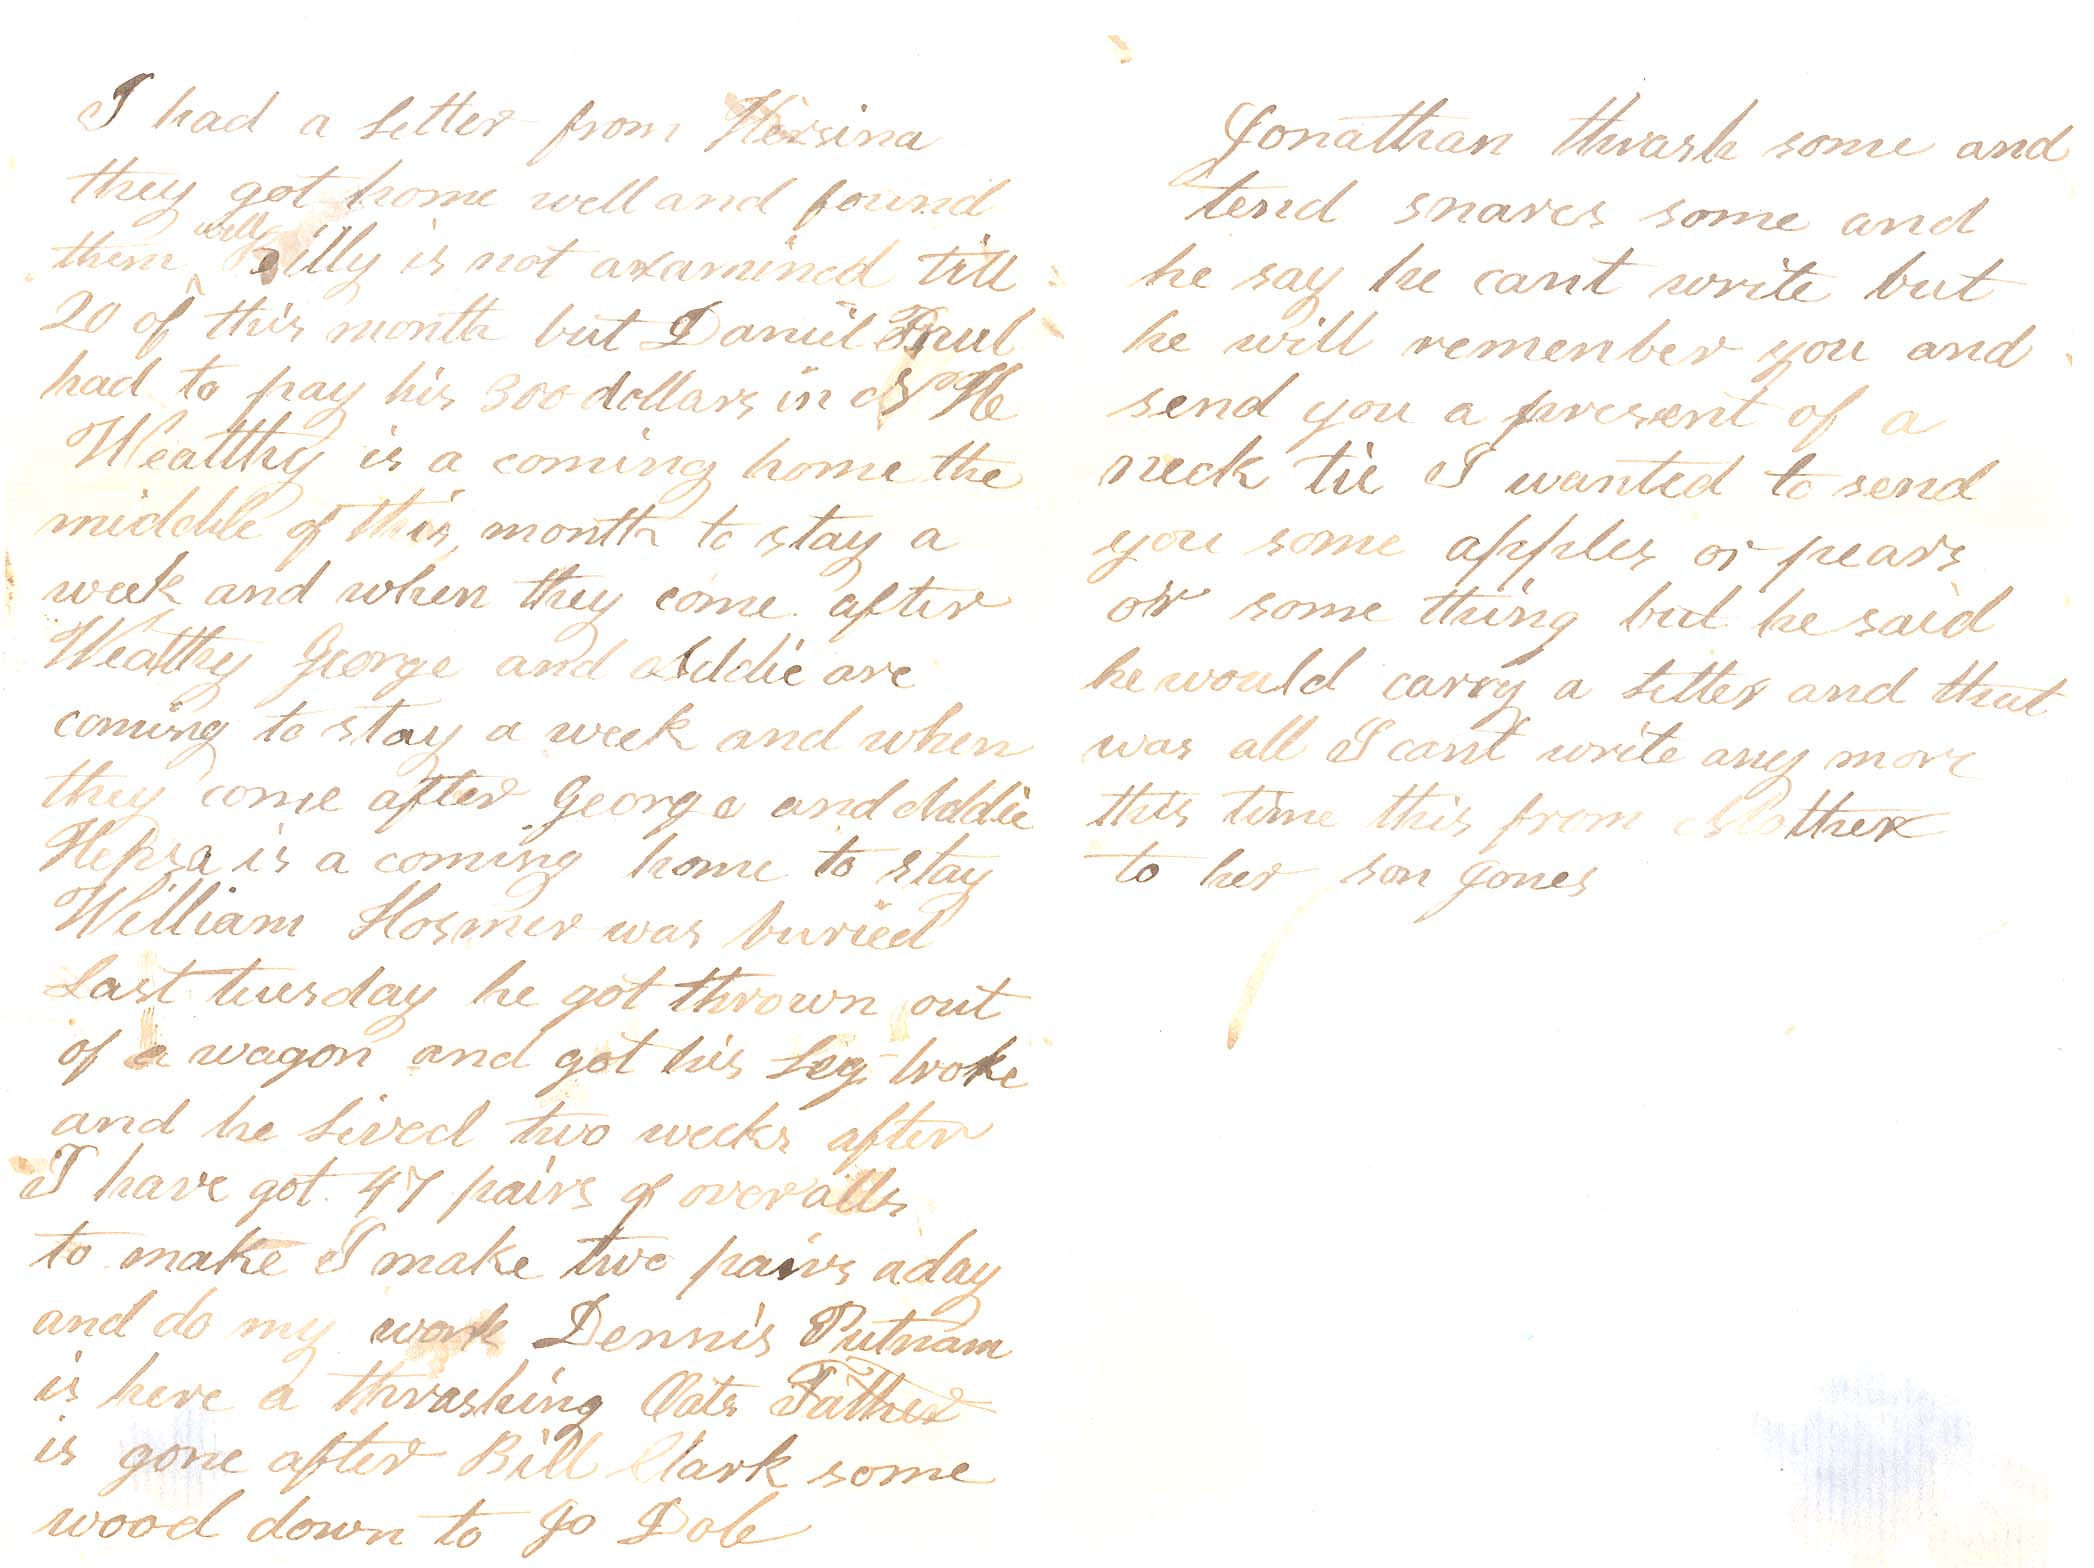 I had a letter from Hersina
they got home well and found
them well Billy is not axamined till
20 of this month but Daniel Paul
had to pay his 300 dollars in
Wealthy is a coming home the
middle of this month to stay a
week and when they come after
Wealthy George and Addie are
coming to stay a week and when
they come after George and Addie
Hepsa is a coming home to stay
William Hosmer was buried
Last tuesday he got thrown out
of a wagon and got his Leg broke
and he Lived two weeks after
I have got 47 pairs of overalls
to make I make two pairs aday
and do my work Dennis Putnam
is here a thrashing Oats Father
is gone after Bill Clark some
wood down to Jo Dole
Jonathan thrash some and
tend snares some and
he say he cant write but
he will remenber you and
send you a present of a
neck tie I wanted to send
you some apples or pears
or some thing but he said
he would carry a Letter and that
was all I cant write any more
this time this from Mother
to her son Jones